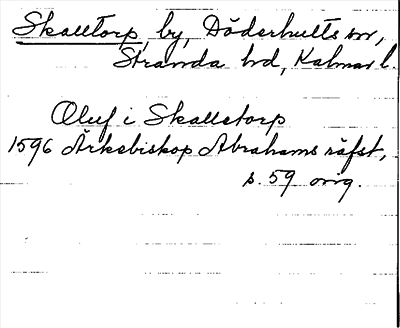 Skalltorp, by, Döderhults sn,
Stranda hd, Kalmar l.
Oluf i Skalletorp
1596 Ärkebiskop Abrahams räfst,
s. 59 orig.